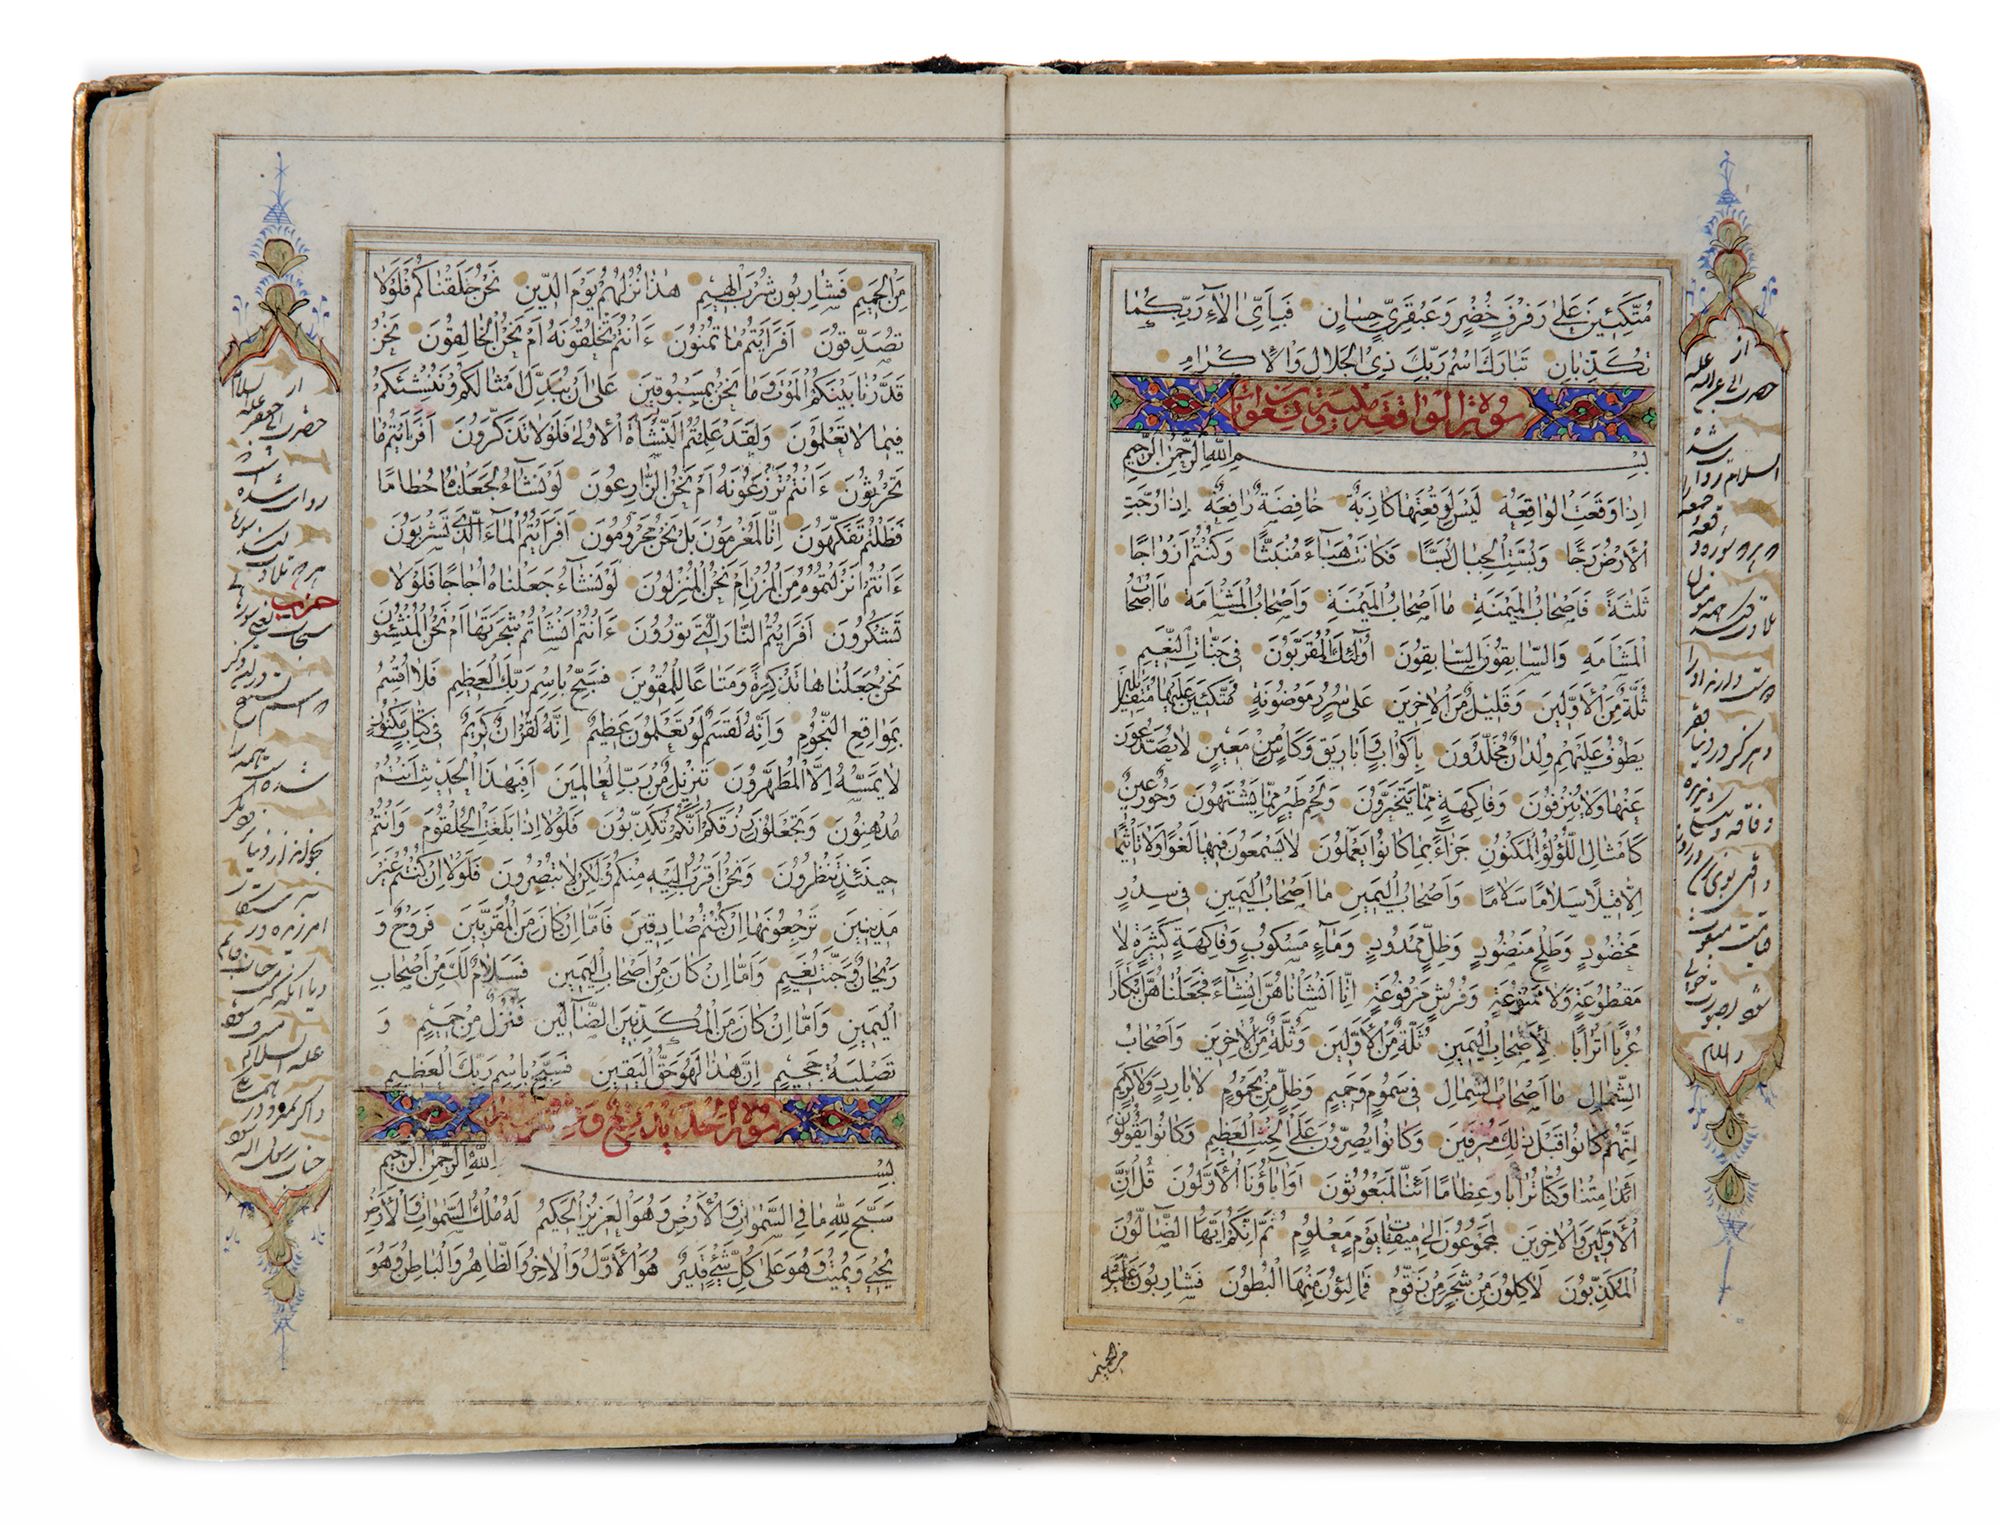 متكئين على رفرف خضر وعبقري حسان فباي الاء ربكما
تكذبان تبارك اسم ربك ذي الجلال والاكرام
سورة الواقعة
بسم الله الرحمن الرحيم
اذا وقعت الواقعة ليس لوقعتها كاذبة خافضة رافعة اذا رجت
الارض رجا وبست الجبال بسا فكانت هباء منبثا وكنتم ازواجا
ثلثة فاصحاب الميمنة ما اصحاب الميمنة واصحاب المشامة ما اصحاب
المشامة والسابقون السابقون اولئك المقربون في جنات النعيم
ثلة من الاولين وقليل من الاخرين على سرر موضونة متكئين عليها متقابلين
يطوف عليهم ولدان مخلدون باكواب واباريق وكاس من معين لا يصدعون
عنها ولا ينزفون وفاكهة مما يتخيرون ولحم طير مما يشتهون وحور عين
كامثال اللؤلؤ المكنون جزاء بما كانوا يعملون لا يسمعون فيها لغوا ولا تاثيما
الا قيلا سلاما سلاما واصحاب اليمين ما اصحاب اليمين في سدر
مخضود وطلح منضود وظل ممدود وماء مسكوب وفاكهة كثيرة لا
مقطوعة ولا ممنوعة وفرش مرفوعة انا انشاناهن انشاء فجعلناهن ابكارا
عربا اترابا لاصحاب اليمين ثلة من الاولين وثلة من الاخرين واصحاب
الشمال ما اصحاب الشمال في سموم وحميم وظل من يحموم لا بارد ولا كريم
انهم كانوا قبل ذلك مترفين وكانوا يصرون على الحنث العظيم وكانوا يقولون
ائذا متنا وكنا ترابا وعظاما ائنا لمبعوثون اواباؤنا الاولون قل ان
الاولين والاخرين لمجموعون الى ميقات يوم معلوم ثم انكم ايها الضالون
المكذبون لاكلون من شجر من زقوم فمالئون منها البطون فشاربون عليه
من الحميم
من الحميم فشاربون شرب الهيم هذا نزلهم يوم الدين نحن خلقناكم فلولا
تصدقون افرايتم ما تمنون ءانتم تخلقونه ام نحن الخالقون نحن
قدرنا بينكم الموت وما نحن بمسبوقين على ان نبدل امثالكم وننشئكم
فيما لا تعلمون ولقد علمتم النشاة الاولى فلولا تذكرون افرايتم ما
تحرثون ءانتم تزرعونه ام نحن الزارعون لو نشاء لجعلناه حطاما
فظلتم تفكهون انا لمغرمون بل نحن محرومون افرايتم الماء الذي تشربون
ءانتم انزلتموه من المزن ام نحن المنزلون لو نشاء جعلناه اجاجا فلولا
تشكرون افرايتم النار التي تورون ءانتم انشاتم شجرتها ام نحن المنشئون
نحن جعلناها تذكرة ومتاعا للمقوين فسبح باسم ربك العظيم فلا اقسم
بمواقع النجوم وانه لقسم لو تعلمون عظيم انه لقران كريم في كتاب مكنون
لا يمسه الا المطهرون تنزيل من رب العالمين افبهذا الحديث انتم
مدهنون وتجعلون رزقكم انكم تكذبون فلولا اذا بلغت الحلقوم وانتم
حينئذ تنظرون ونحن اقرب اليه منكم ولكن لا تبصرون فلولا ان كنتم غير
مدينين ترجعونها ان كنتم صادقين فاما ان كان من المقربين فروح و
ريحان وجنت نعيم واما ان كان من اصحاب اليمين فسلام لك من اصحاب
اليمين واما ان كان من المكذبين الضالين فنزل من حميم و
تصلية جحيم ان هذا لهو حق اليقين فسبح باسم ربك العظيم
سورة الحديد
بسم الله الرحمن الرحيم
سبح لله ما في السموات والارض وهو العزيز الحكيم له ملك السموات والارض
يحيي ويميت وهو على كل شئ قدير هو الاول والاخر والظاهر والباطن وهو
از
حضرت ابي جعفر عليه السلام
حزب
عليه السلام